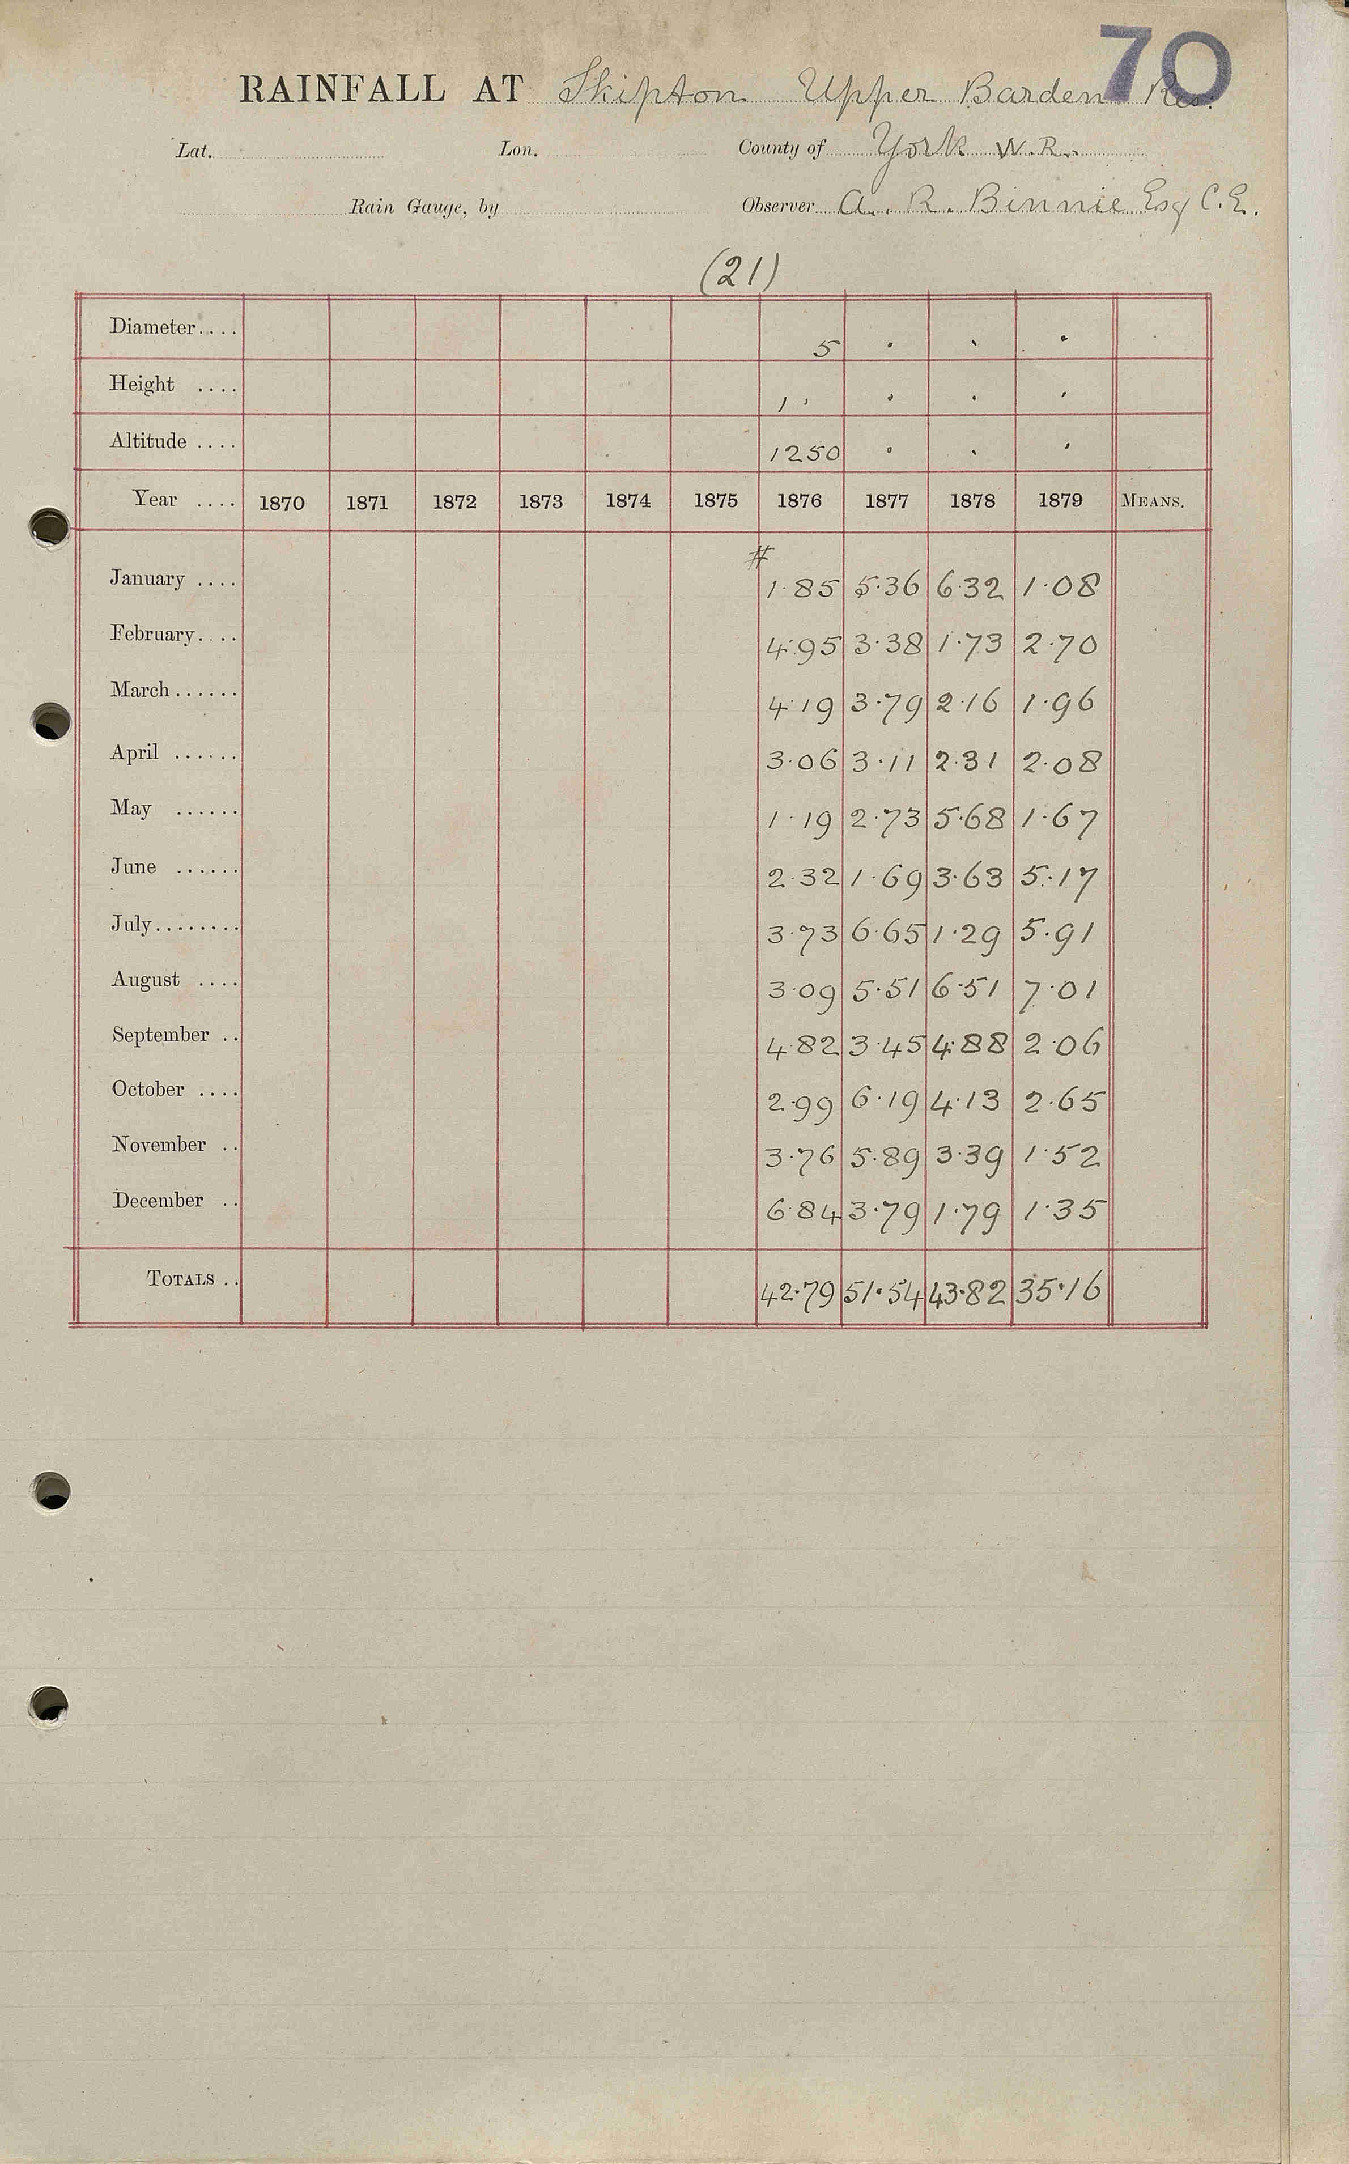 70
RAINFALL AT Skipton Upper Barden Res.
Lat. Lon. County of York W.R.
Rain Gauge, by Observer A. R. Binnie Esq C.E.
(21)
Diameter.... 5 " " "
Height .... 1' " " "
Altitude .... 1250 " " "
Year .... 1870 1871 1872 1873 1874 1875 1876 1877 1878 1879 MEANS.
#
January .... 1.85 5.36 6.32 1.08
February.... 4.95 3.38 1.73 2.70
March...... 4.19 3.79 2.16 1.96
April ...... 3.06 3.11 2.31 2.08
May ...... 1.19 2.73 5.68 1.67
June ...... 2.32 1.69 3.63 5.17
July........ 3.73 6.65 1.29 5.91
August .... 3.09 5.51 6.51 7.01
September .. 4.82 3.45 4.88 2.06
October .... 2.99 6.19 4.13 2.65
November .. 3.76 5.89 3.39 1.52
December .. 6.84 3.79 1.79 1.35
TOTALS .. 42.79 51.54 43.82 35.16